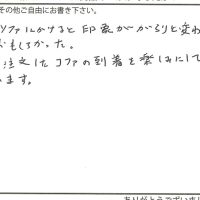 その他ご自由にお書き下さい。
ソファにかけると印象ががらりと変わ
おもしろかった。
注文したコファの到着を楽しみにして
います。
ありがとうございま